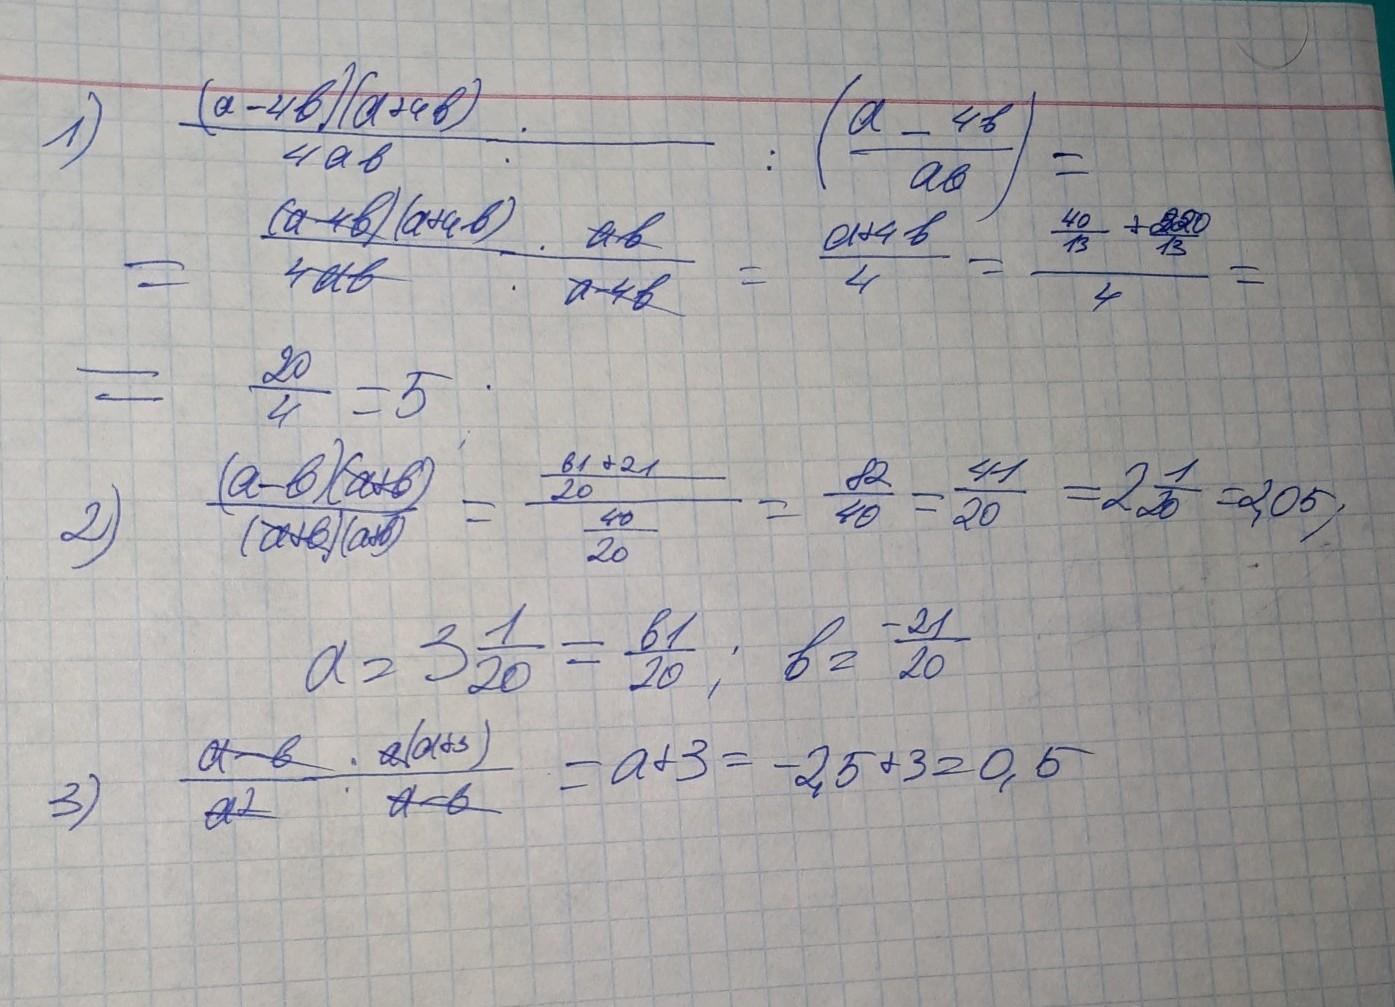 1) (a-4b)(a+4b)/4ab : (a-4b/ab) =
= (a-4b)(a+4b)/4ab · ab/a-4b = a+4b/4 = 40/13 + 220/13 / 4 =
= 20/4 = 5 ;
2) (a-b)(a+b)/(a+b)(a+b) = 61+21/20 / 40/20 = 82/40 = 41/20 = 2 1/20 = 2,05;
a = 3 1/20 = 61/20 ; b = -21/20
3) a-b/a² · a(a+3)/a-b = a+3 = -2,5+3 = 0,5